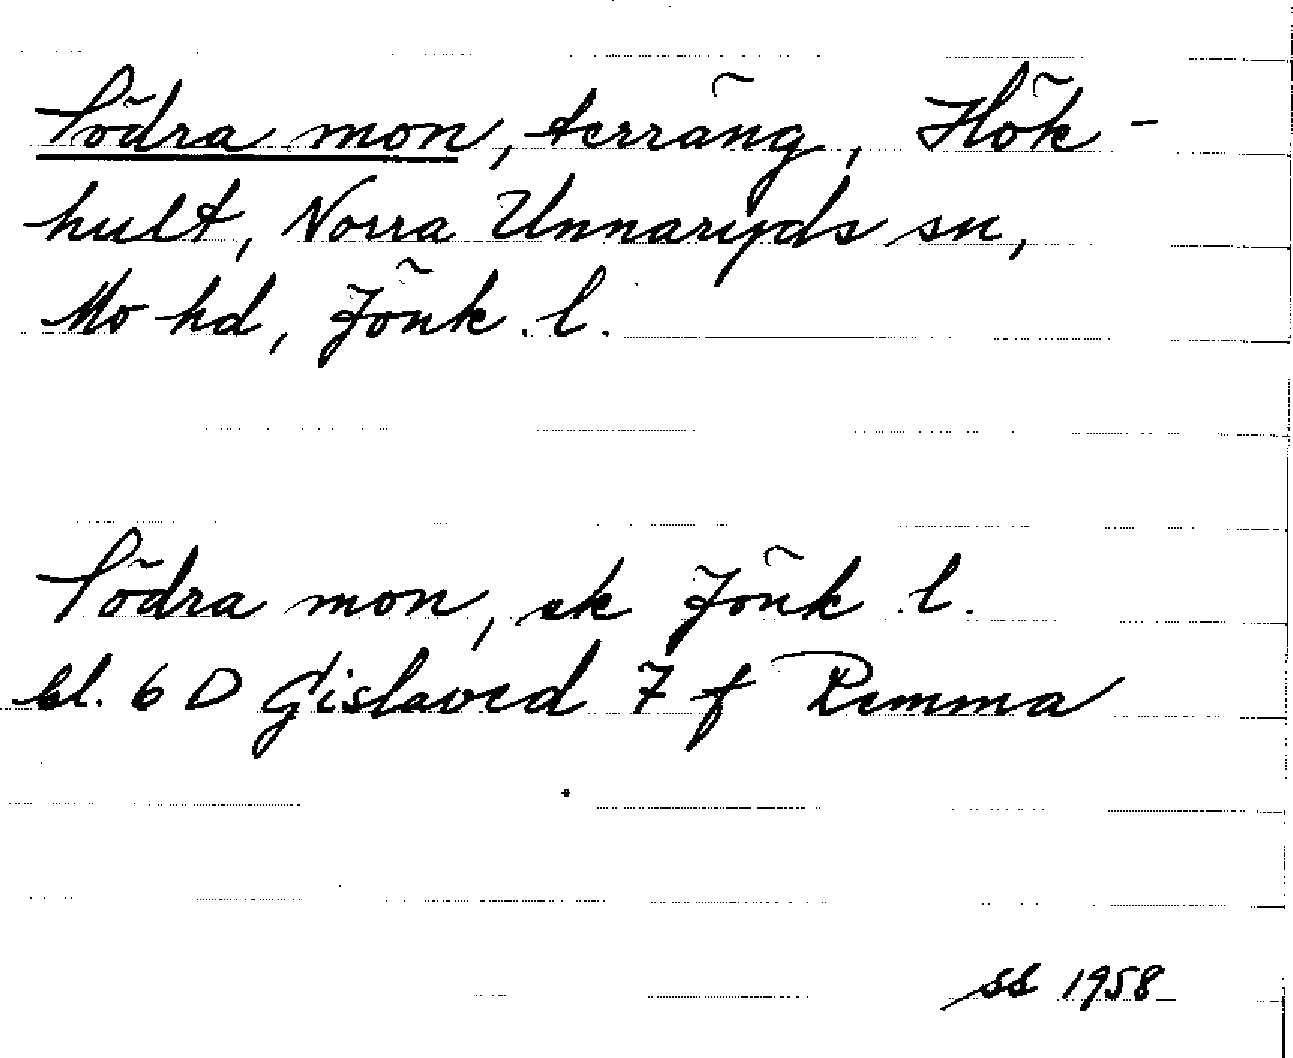 Södra mon, terräng, Hök-
hult, Norra Unnaryds sn,
Mo hd, Jönk. l.
Södra mon, ek Jönk l.
bl. 6 D Gislaved 7 f Remma
SS 1958